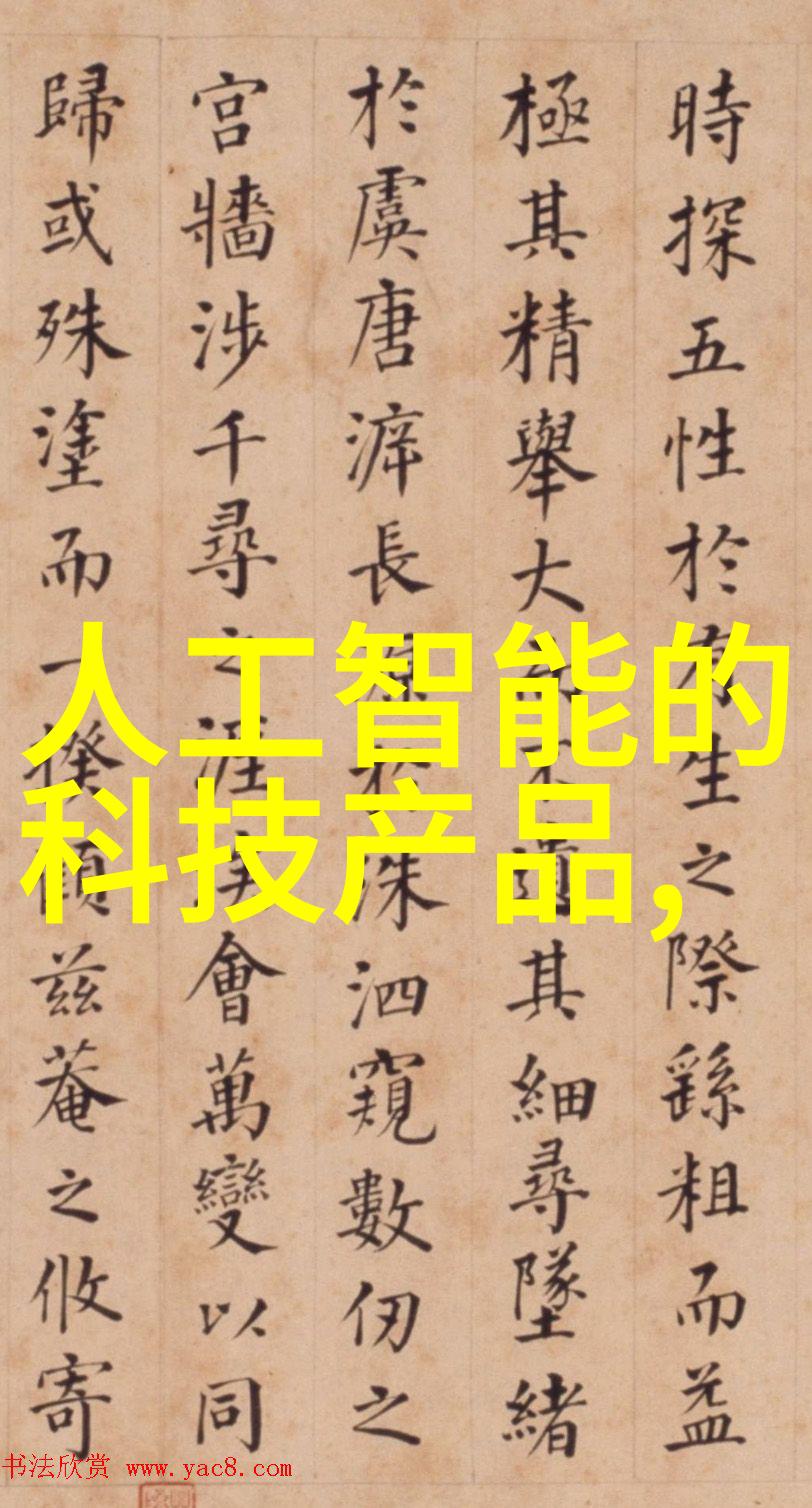 時探五性於有生之際繇粗而益
極其精舉大不遺其細尋墜緒
於虞唐長於洙泗窺數仞之
宮牆涉千尋之涯會萬變以同
歸或殊塗而一揆顧兹菴之攸寄
人工智能的
科技产品,
书法欣赏 www.yac8.com